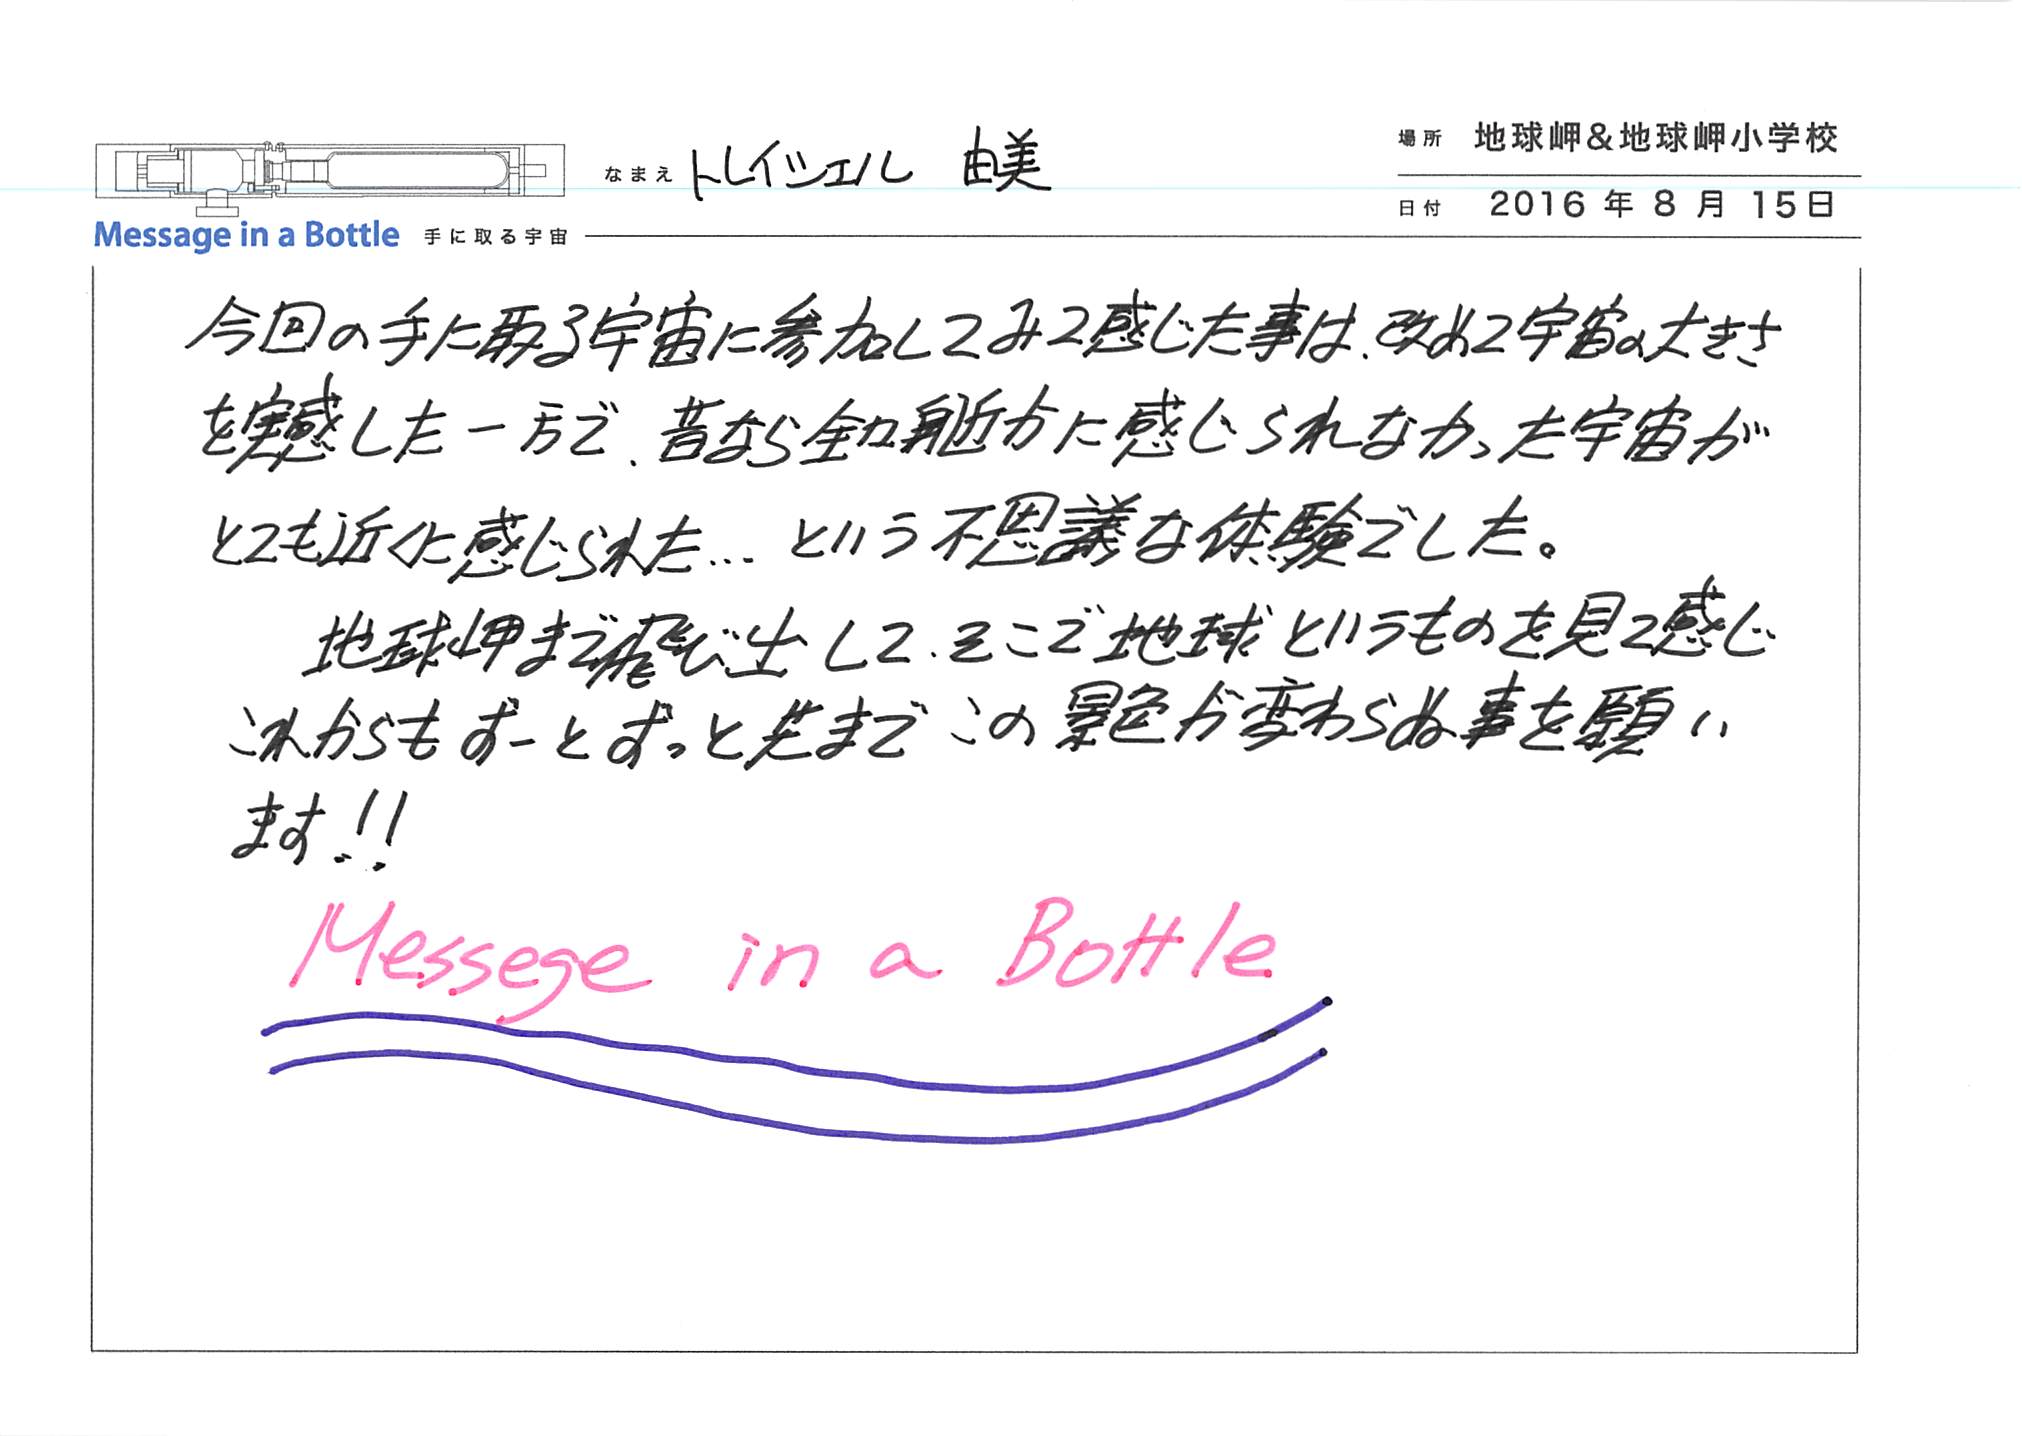 なまえ トレイシェル 由美
場所 地球岬&地球岬小学校
日付 2016 年 8 月 15日
Message in a Bottle 手に取る宇宙
今回の手に取る宇宙に参加してみて感じた事は、改めて宇宙の大きさ
を実感した一方で、昔なら全く身近かに感じられなかった宇宙が
とても近くに感じられた… という不思議な体験でした。
地球岬まで飛び出して、そこで地球というものを見て感じ
これからもずーとずっと先までこの景色が変わらぬ事を願い
ます!!
Messege in a Bottle